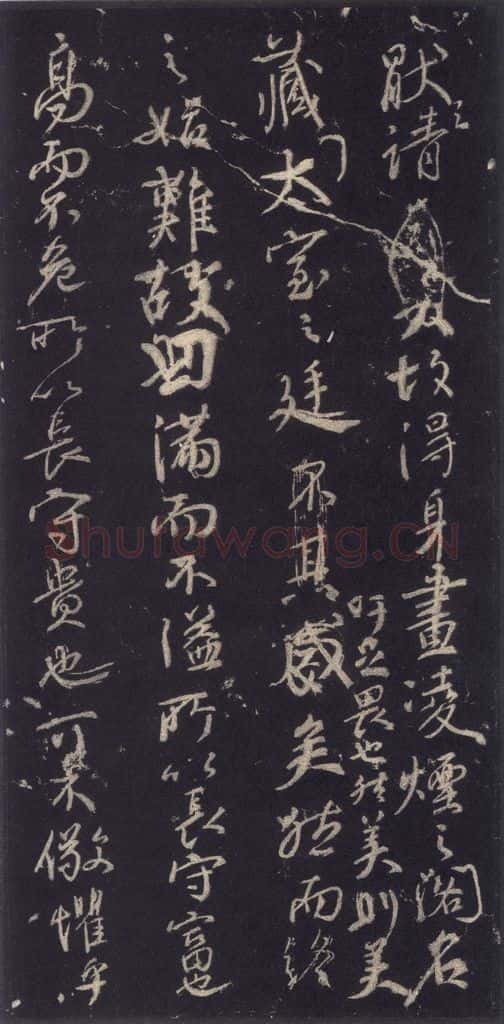 猒之請故得身畫凌煙之閣名
吁足畏也然美則美
藏太室之廷其盛矣然而終
之始難故曰滿而不溢所以長守富也
高而不危所以長守貴也可不儆懼乎
Shufawang.CN